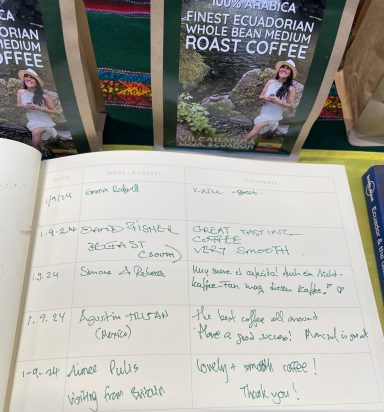 100% ARABICA
FINEST ECUADORIAN
WHOLE BEAN MEDIUM
ROAST COFFEE
ADORIAN
MEDIUM
OFFEE
VILCABAMBA
LOJA, ECUADOR
DATE NAME-ADDRESS COMMENTS
1/9/24 Emma V. nice - great.
1-9-24 DAVID FISHER GREAT TASTING
BELFAST COFFEE
(SOUTH) VERY SMOOTH
1.9.24 Simone & Rebecca Muy suave el cafecito! Auch ein Nicht-
Kaffee-Fan mag diesen Kaffee!
1.9.24 Agustin the best coffee all around
(Mexico) Have a good success! is great
1-9-24 Aimee Pulis lovely + smooth coffee!
visiting from Britain Thank you!
Ecuador & the